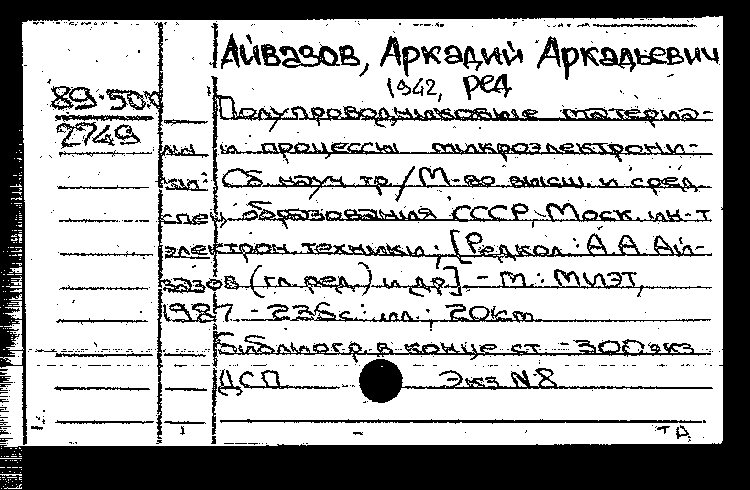 Айвазов, Аркадий Аркадьевич
1942, ред
89-50
2749
Полупроводниковые материа-
лы и процессы микроэлектрони-
ки: Сб. науч. тр./М-во высш. и сред.
спец. образования СССР, Моск. ин-т
электрон. техники; [Редкол.: А.А. Ай-
вазов (гл. ред.) и др]. - М.: МИЭТ,
1987. - 236 с.: ил.; 20 см
Библиогр. в конце ст. - 300 экз
ДСП Экз N8